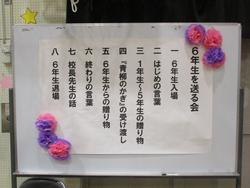 ６年生を送る会
一 ６年生入場
二 はじめの言葉
三 １年生～５年生の贈り物
四 「青柳のかぎ」の受け渡し
五 ６年生からの贈り物
六 終わりの言葉
七 校長先生の話
八 ６年生退場